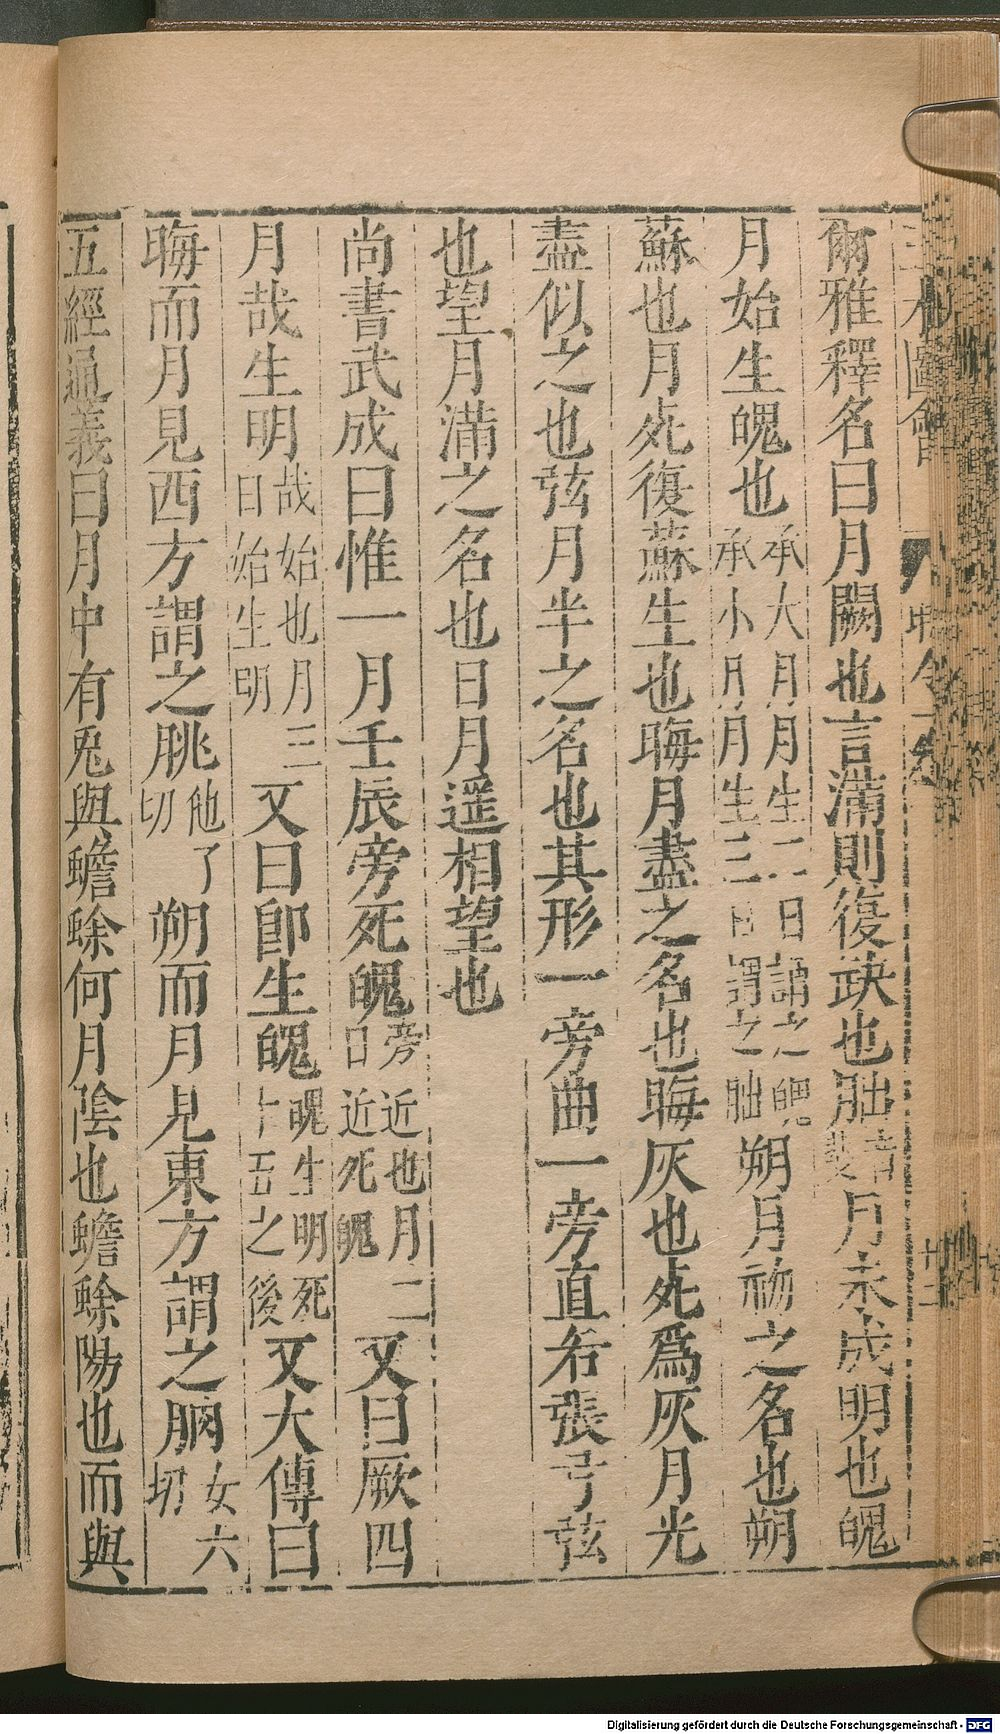 三才圖會
爾雅釋名曰月闕也言滿則復缺也朏音斐月未成明也魄
月始生魄也承大月月生二日謂之魄承小月月生三日謂之朏朔月初之名也朔
蘇也月死復蘇生也晦月盡之名也晦灰也死為灰月光
盡似之也弦月半之名也其形一旁曲一旁直若張弓弦
也望月滿之名也日月遥相望也
尚書武成曰惟一月壬辰旁死魄旁近也月二日近死魄又曰厥四
月哉生明哉始也月三日始生明又曰即生魄魄生明死十五之後又大傳曰
晦而月見西方謂之朓他了切朔而月見東方謂之朒女六切
五經通義曰月中有兎與蟾蜍何月陰也蟾蜍陽也而與
Digitalisierung gefördert durch die Deutsche Forschungsgemeinschaft - DFG